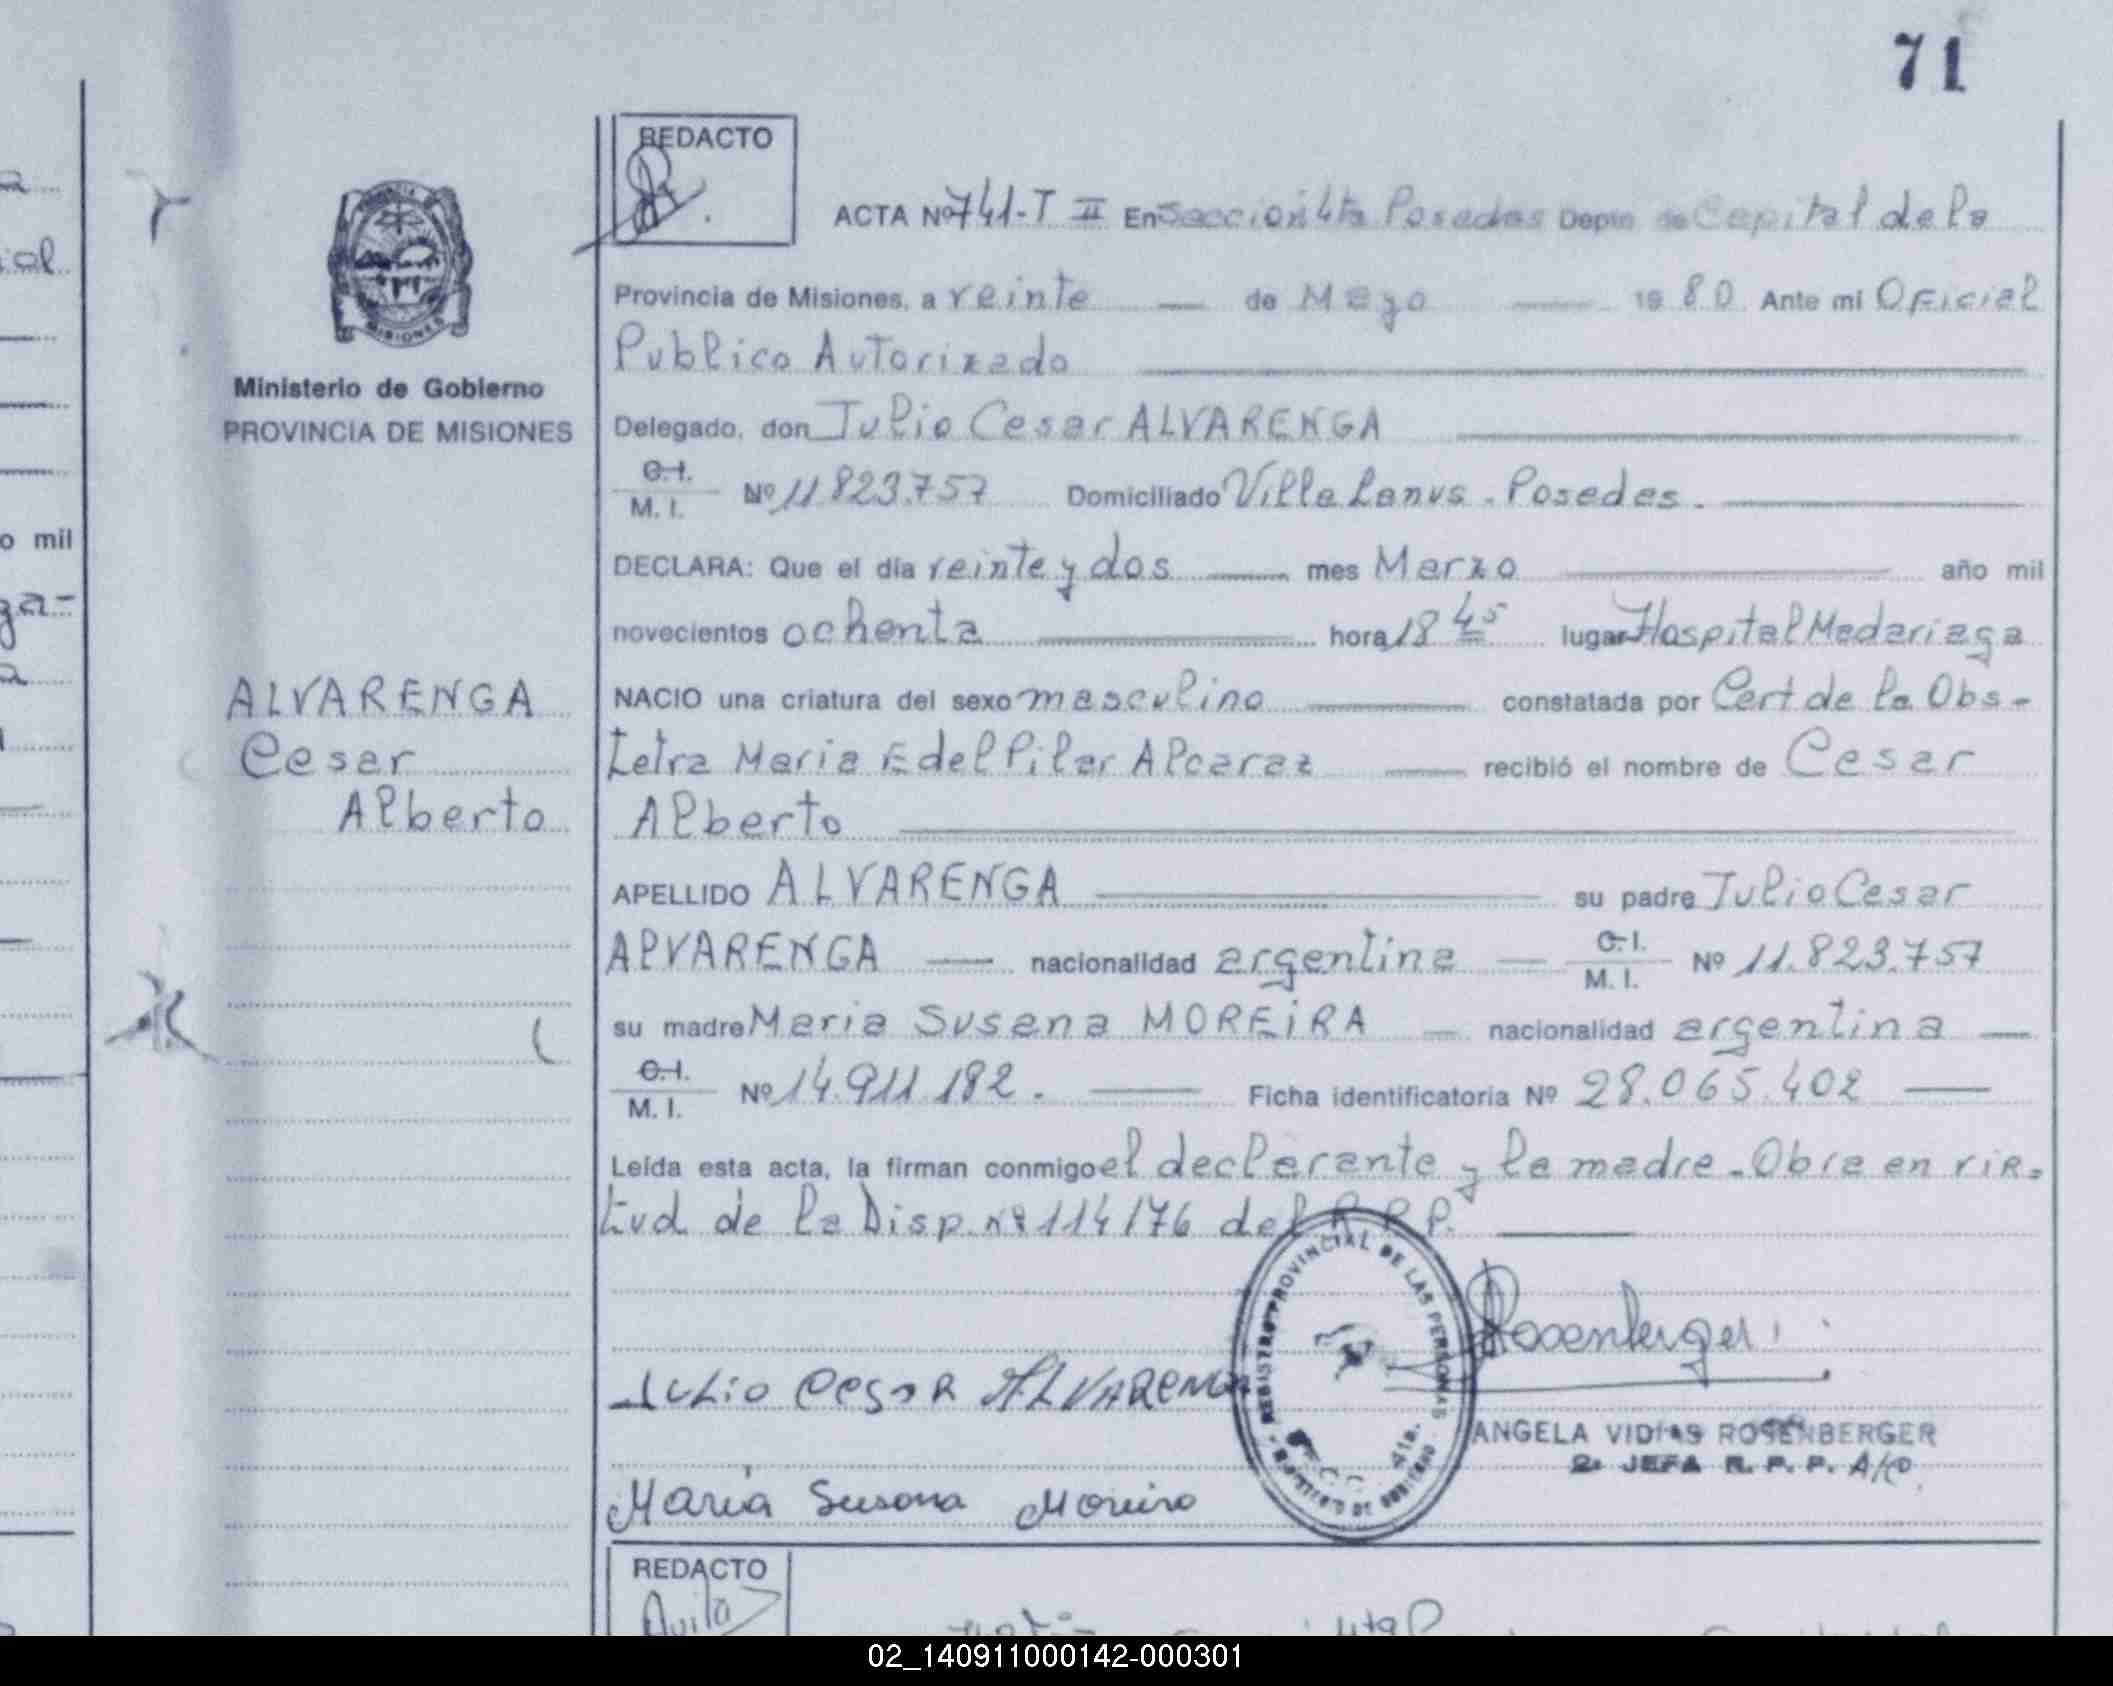 71
REDACTO
ACTA Nº 741-T II En Seccion 4ta Posadas Depto de Capital de la
Provincia de Misiones, a veinte — de Mayo — 1980 Ante mi Oficial
Publico Autorizado
Delegado, don Julio Cesar ALVARENGA
C.I.
M. I. Nº 11.823.757 Domiciliado Villa Lanus - Posadas.
DECLARA: Que el día veinte y dos — mes Marzo — año mil
novecientos ochenta — hora 18 45 lugar Hospital Madariaga
NACIO una criatura del sexo masculino — constatada por Cert de la Obs-
tetra Maria E del Pilar Alcaraz — recibió el nombre de Cesar
Alberto
APELLIDO ALVARENGA — su padre Julio Cesar
ALVARENGA — nacionalidad argentina — C.I.
M. I. Nº 11.823.757
su madre Maria Susana MOREIRA — nacionalidad argentina —
C.I.
M. I. Nº 14.911.182. — Ficha identificatoria Nº 28.065.402 —
Leída esta acta, la firman conmigo el declarante y la madre. Obra en vir-
tud de la Disp. nº 114/76 del R.P.P. —
Julio Cesar ALVARENGA
Maria Susana Moreira
Rosenberger
ANGELA VIDIAS ROSENBERGER
2ª JEFA R. P. P. A/C
REGISTRO PROVINCIAL DE LAS PERSONAS
MINISTERIO DE GOBIERNO
MISIONES
Ministerio de Gobierno
PROVINCIA DE MISIONES
ALVARENGA
Cesar
Alberto
o mil
REDACTO
Avila
02_140911000142-000301